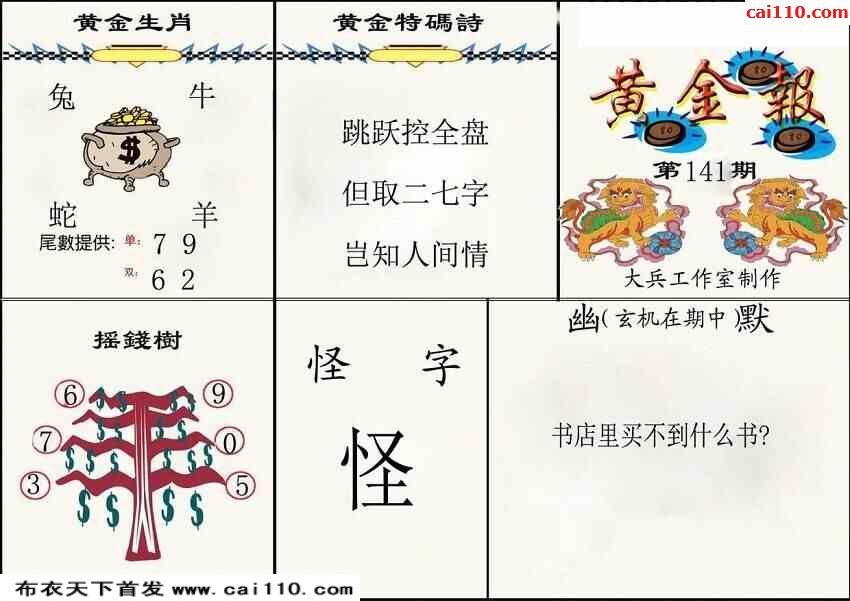 cai110.com
黄金生肖
兔 牛
$
蛇 羊
尾數提供: 单: 7 9
双: 6 2
黄金特碼詩
跳跃控全盘
但取二七字
岂知人间情
黄金報
80
80
80
第141期
大兵工作室制作
摇錢樹
6 9
7 0
3 5
$ $ $ $
$ $ $ $ $ $
$ $ $ $
怪 字
怪
幽(玄机在期中)默
书店里买不到什么书?
布衣天下首发 www.cai110.com